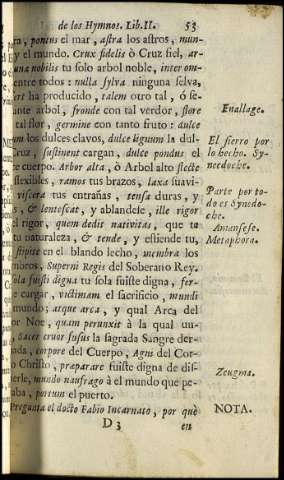 de los Hymnos. Lib. II. 53
ra, pontus el mar, astra los astros, mun-
y el mundo. Crux fidelis ò Cruz fiel, ar-
una nobilis tu solo arbol noble, inter om-
entre todos: nulla sylva ninguna selva,
ert ha producido, talem otro tal, ó se-
ante arbol, fronde con tal verdor, flore
tal flor, germine con tanto fruto: dulce
um los dulces clavos, dulce lignum la dul-
Cruz, sustinent cargan, dulce pondus el
te cuerpo. Arbor alta, ò Arbol alto flecte
flexibles, ramos tus brazos, laxa suavi-
viscera tus entrañas, tensa duras, y
s, & lentescat, y ablandele, ille rigor
el rigor, quem dedit nativitas, que te
tu naturaleza, & tende, y estiende tu,
stipite en el blando lecho, membra los
mbros, Superni Regis del Soberano Rey.
Sola fuisti digna tu sola fuiste digna, fer-
e cargar, victimam el sacrificio, mundi
mundo; atque arca, y qual Arca del
or Noe, quam perunxit à la qual un-
Sacer cruor fusus la sagrada Sangre der-
ada, corpore del Cuerpo, Agni del Cor-
o Christo, præparare fuiste digna de dis-
erle, mundo naufrago à el mundo que pe-
aba, portum el puerto.
Pregunta el docto Fabio Incarnato, por què
D 3 en
Enallage.
El fierro por
lo hecho. Sy-
necdoche.
Parte por to-
do es Synecdo-
che.
Amansese.
Metaphora.
Zeugma.
NOTA.